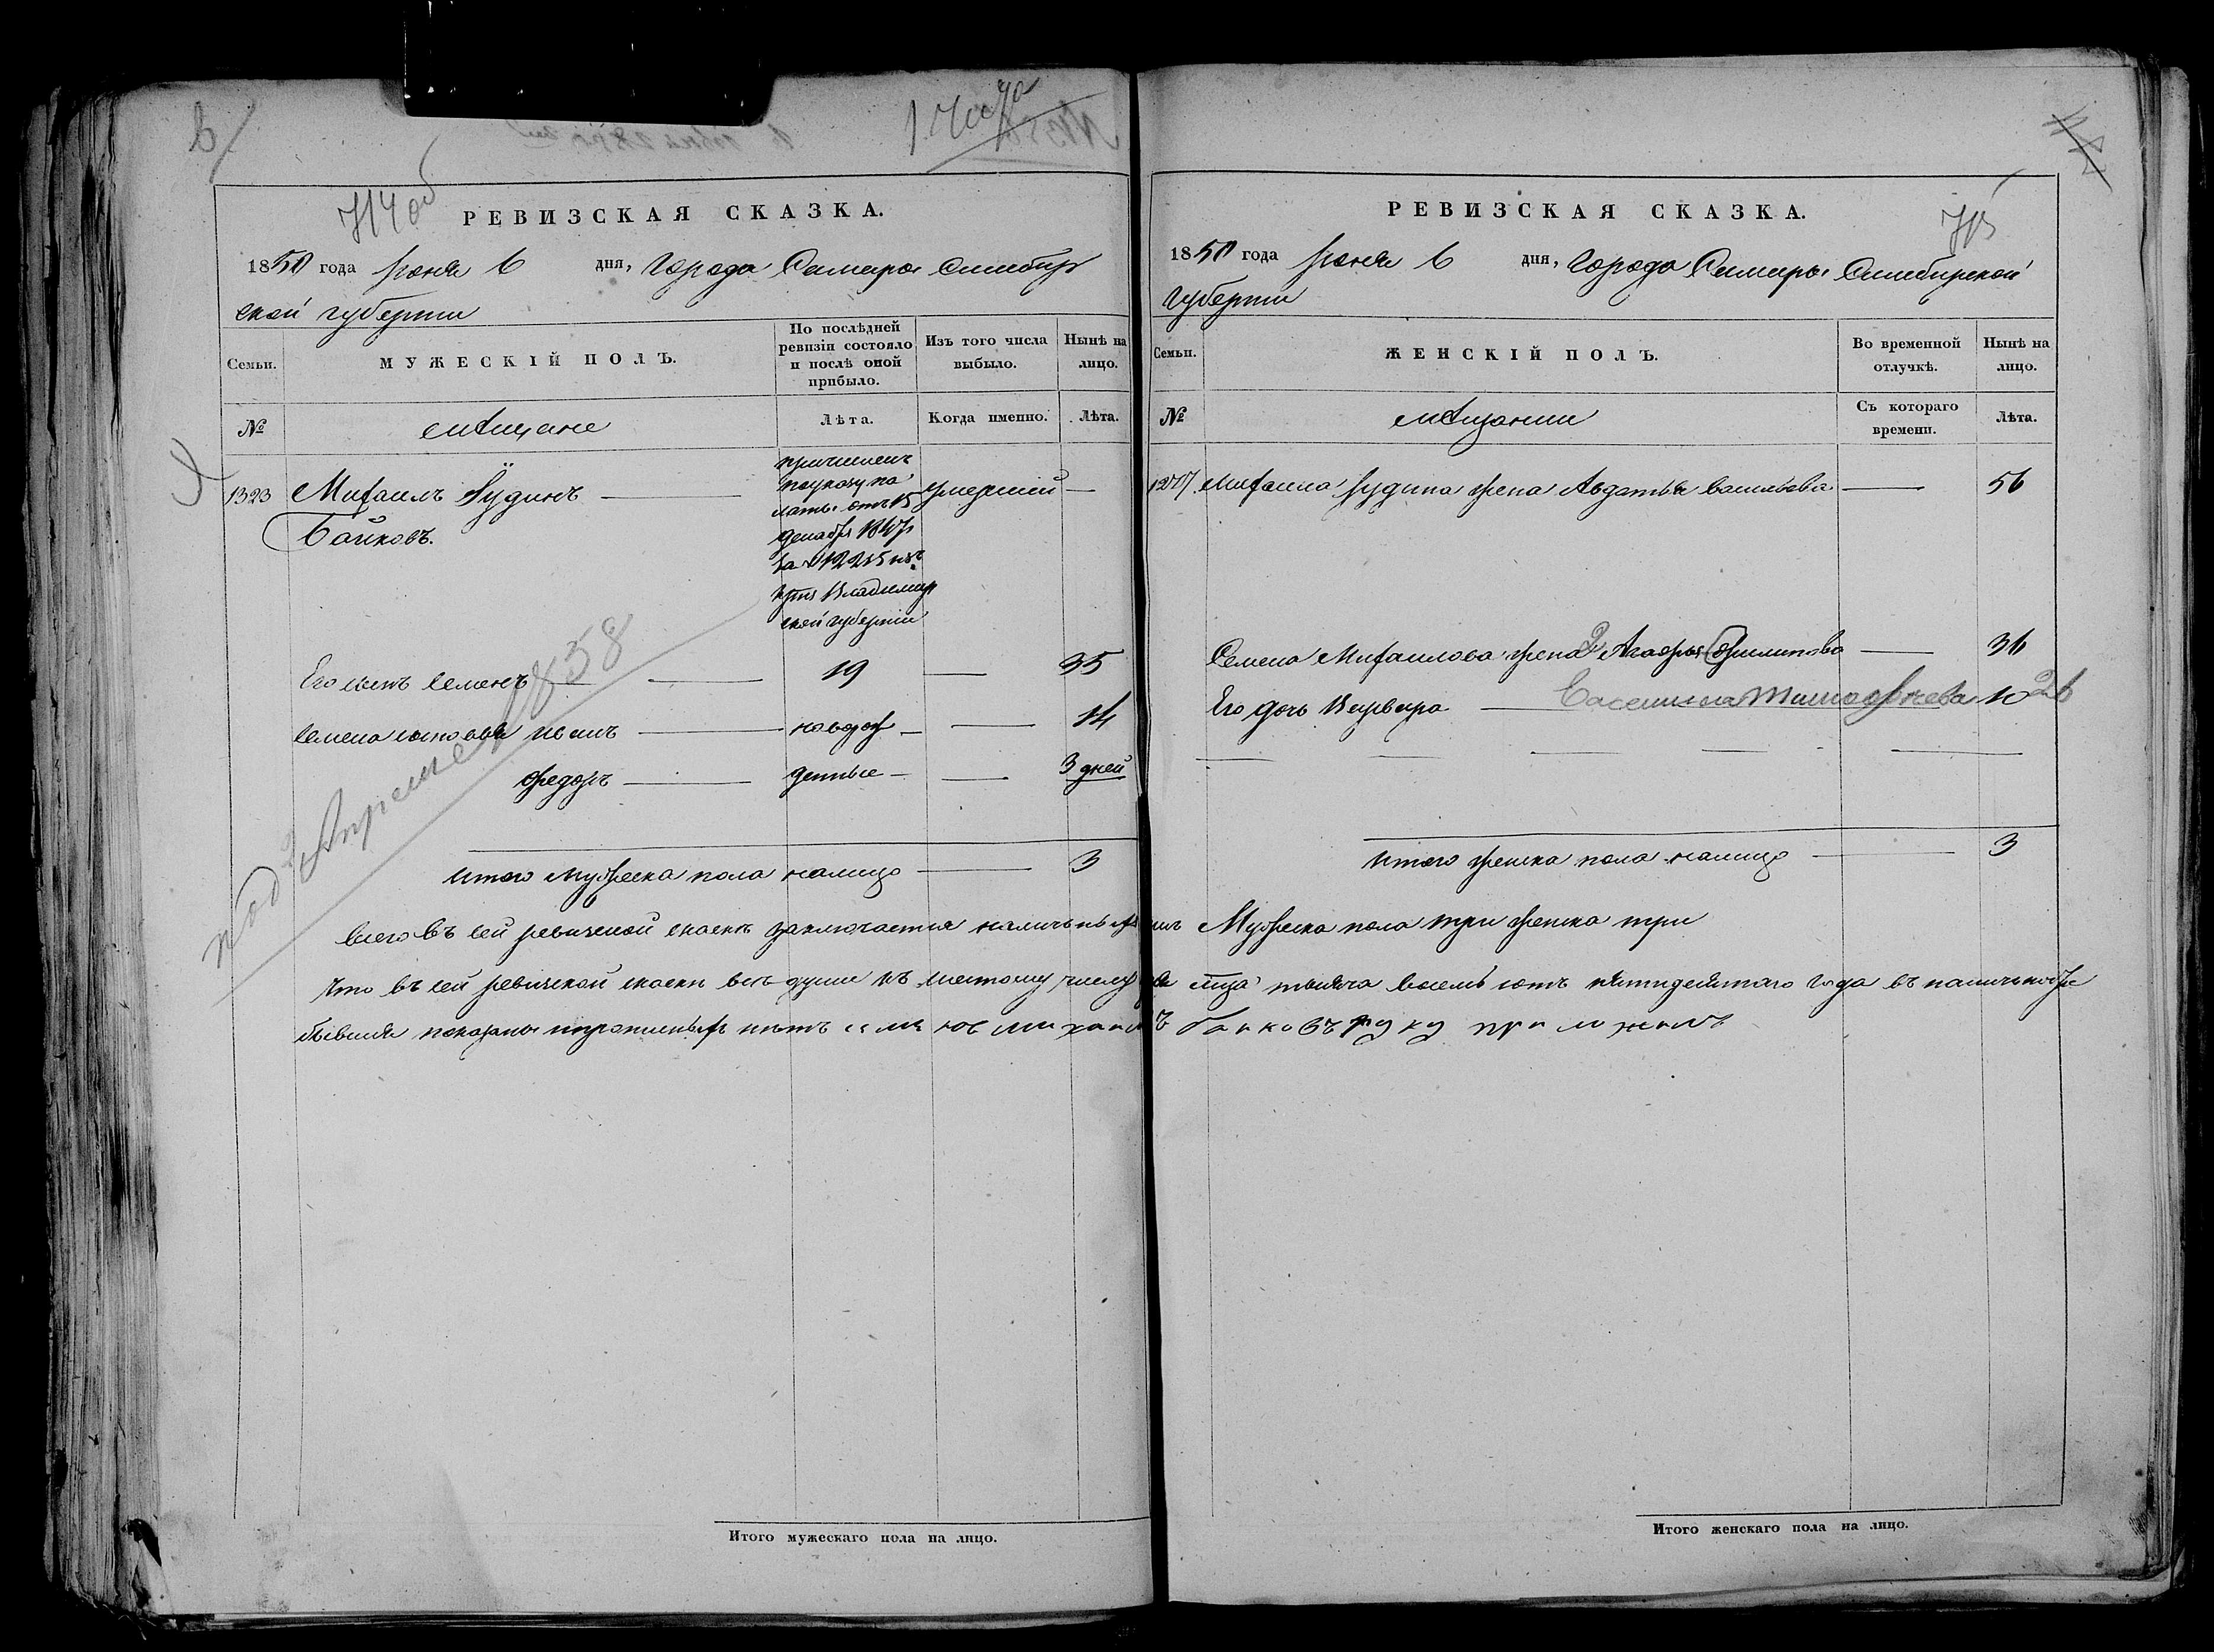 1 часа
714 об
РЕВИЗСКАЯ СКАЗКА.
1850 года Іюня 6 дня, Города Самары Симбир
ской губерніи
Семьи. МУЖЕСКІЙ ПОЛЪ. По послѣдней ревизіи состояло и послѣ оной прибыло. Изъ того числа выбыло. Нынѣ на лицо.
№ мѣщане Лѣта. Когда именно. Лѣта.
1323 Михаилъ Юдинъ причисленъ
поуказу па
латы отъ 15 умерший
Байковъ. декабря 1847
за № 12215 изъ
Владимир
ской губерніи
Его сынъ Семенъ 19 35
Семена сыновья Иванъ новорож 14
Федоръ денные 3 дней
под 1858
итого мужеска пола налицо 3
715
РЕВИЗСКАЯ СКАЗКА.
1850 года Іюня 6 дня, Города Самары Симбирской
губерніи
Семьи. ЖЕНСКІЙ ПОЛЪ. Во временной отлучкѣ. Нынѣ на лицо.
№ мѣщанки Съ котораго времени. Лѣта.
Михаила Юдина жена Авдотья Васильева 56
Семена Михаилова жена Агафья Филипова 36
Его дочь Варвара 10
Тимофѣева
итого женска пола налицо 3
всего въ сей ревизской сказкѣ заключается наличныхъ Мужеска пола три женска три
что въ сей ревизской сказкѣ всѣ души къ шестому числу тысяча восемь сотъ пятидесятаго года въ наличности
бывшія показаны и прописныхъ нѣтъ семѣновъ михаилъ байковъ руку приложилъ
Итого мужескаго пола на лицо.
Итого женскаго пола на лицо.